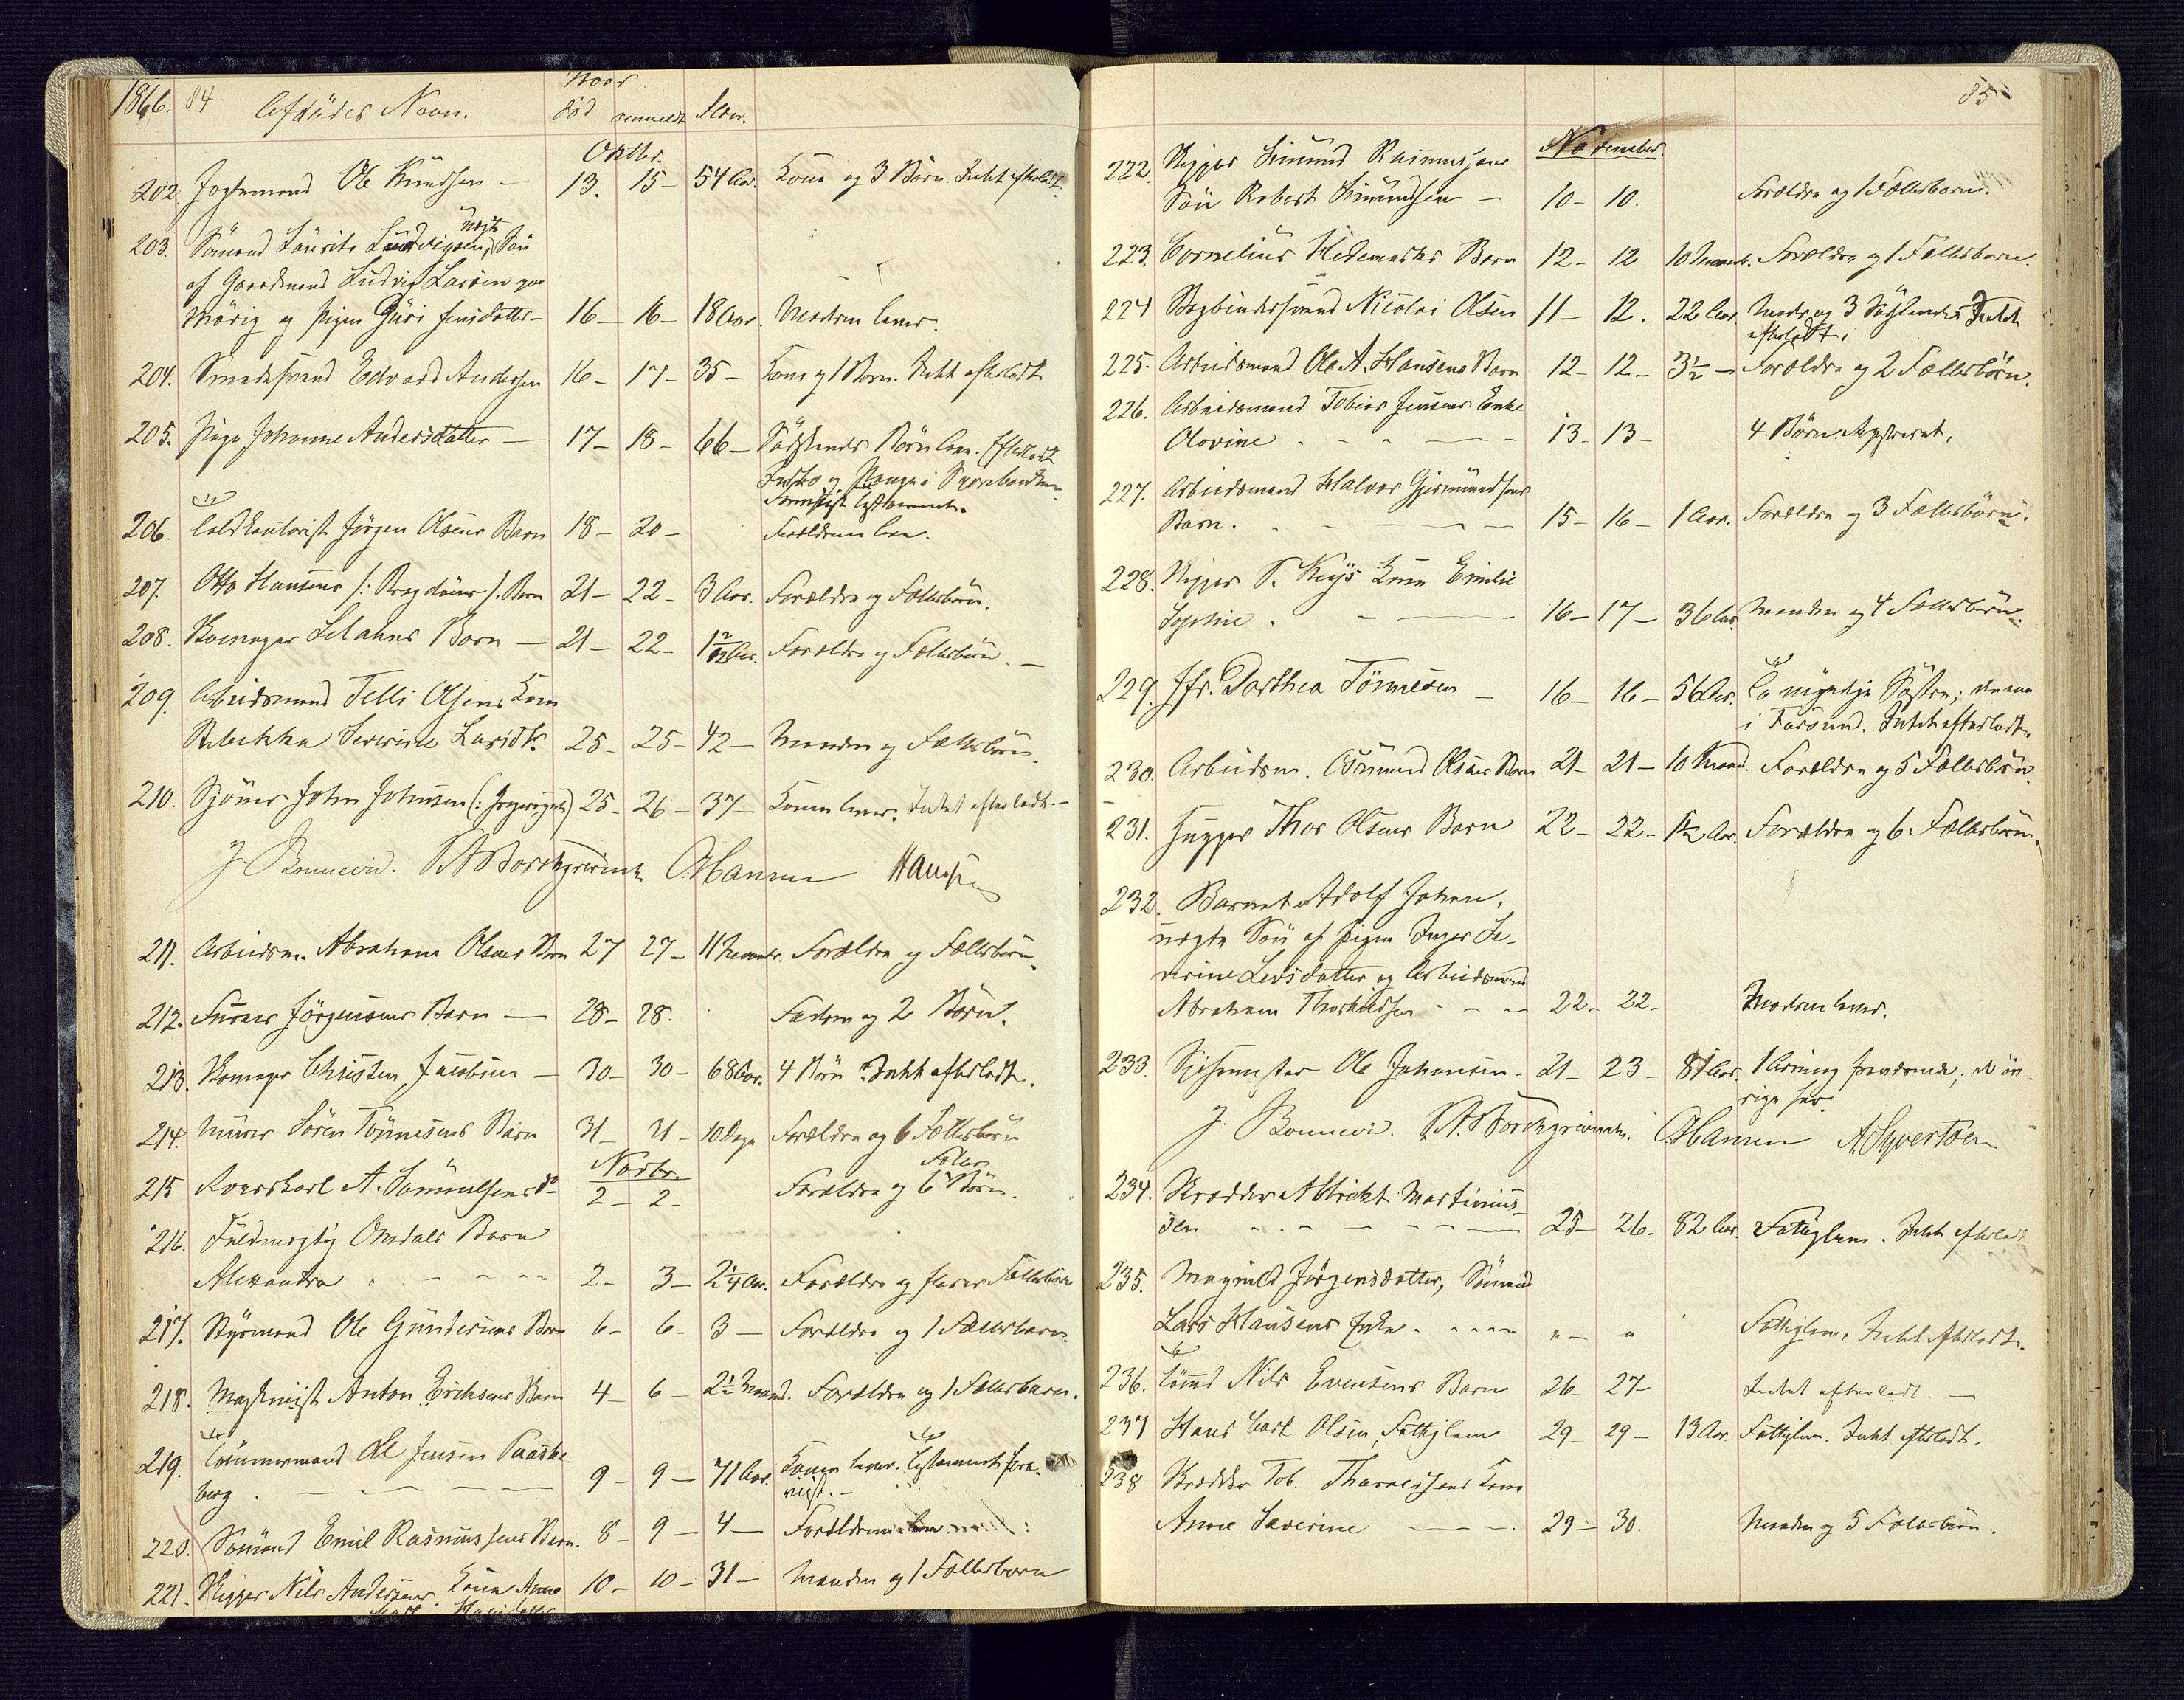 1866. 84 Afdødes Navn. Naar død anmeldt Alder.
Oktbr.
202. Ole Knudsen — 13. 15 — 54 Aar. Kone og 3 Børn. Intet efterladt.
203. Sømand Laurits Ludvigsen, uægte Søn
af Gaardmand Ludvig Larsen
og Pigen Guri Jensdatter — 16 — 16 — 18 Aar. Moderen lever.
204. Smedesvend Edvard Andersen 16 — 17 — 35 — Kone og 1 Barn. Intet efterladt
205. Pige Johanne Andersdatter — 17 — 18 — 66 — Efterladt
og Penge i Sparebanken.
206. Jørgen Olsens Barn 18 — 20 — Forældrene leve.
207. Otto Hansens /: :/ Barn 21 — 22 — 3 Aar. Forældre og Fællesbørn.
208. Barn — 21 — 22 — 1 2/12 Aar. Forældre og Fællesbørn. —
209. Arbeidsmand Telli Olsens Kone
Rebekka Severine Larsdtr. 25 — 25 — 42 — Manden og Fællesbørn.
210. John Johnsen 25 — 26 — 37 — Konen lever. Intet efterladt. —
J. Bonnevie. Borchgrevink Hansen
211. Arbeidsm. Abraham Olsens Barn 27 27 — 11 Maaneder. Forældre og Fællesbørn.
212. Jørgensens Barn — 28 — 28. Faderen og 2 Børn.
213. Skomager Christen Jacobsen — 30 — 30 — 68 Aar. 4 Børn. Intet efterladt.
214. Murer Søren Tønnesens Barn 31 — 31 — 10 Dage Forældre og 6 Fællesbørn
Novbr.
215 A. Samuelsens do 2 — 2 — Forældre og 6 Fælles Børn.
216. Fuldmægtig Omdals Barn
Alexandra 2 — 3 — 2 1/4 Aar. Forældre og flere Fællesbørn
217. Styrmand Ole Gundersens Barn 6 — 6 — 3 — Forældre og 1 Fællesbarn.
218. Maskinist Anton Erichsens Barn 4 — 6 — 2 1/2 Maaned. Forældre og 1 Fællesbarn.
219. Tømmermand Ole Jensen Paaske-
berg — 9 — 9 — 71 Aar. Konen lever. Testament
220. Sømand Emil Rasmussens Barn. 8 — 9 — 4 — Forældrene leve.
221. Skipper Nils Andersens Kone Anne 10 — 10 — 31 — Manden og 1 Fællesbarn
85
November.
222. Skipper Simund Rasmussens
Søn Robert Simundsen — 10 — 10. Forældre og 1 Fællesbarn.
223. Cornelius Hedemarks Barn 12 — 12 10 Maaneder. Forældre og 1 Fællesbarn.
224 Bogbindersvend Nicolai Olsen 11 — 12. 22 Aar. Moder og 3 Søskende. Intet
efterladt.
225. Arbeidsmand Ole A. Hansens Barn 12 — 12 — 3 1/2 — Forældre og 2 Fællesbørn.
226. Arbeidsmand Tobias Jensens Enke
Olovine — 13 — 13 — 4 Børn.
227. Arbeidsmand Halvor Gjermundsens
Barn. — 15 — 16 — 1 Aar. Forældre og 3 Fællesbørn.
228. Skipper Kone Emilie
Sophie — 16 — 17 — 36 Aar. Manden og 4 Fællesbørn.
229. Jfr. Dorthea Tönnesen — 16 — 16 — 56 Aar. En myndig Søster,
i Farsund. Intet efterladt.
230. Arbeidsm. Osmund Olsens Barn 21 — 21 — 10 Maaned. Forældre og 5 Fællesbørn.
231. Thor Olsens Barn 22 — 22 — 1 1/2 Aar. Forældre og 6 Fællesbørn.
232. Barnet Adolf Johan,
uægte Søn af Pigen Inger Se-
verine Larsdatter og Arbeidsmand
Abraham — 22 — 22 — Moderen lever.
233. Ole Johansen — 21 — 23 — 81 Aar. 1 Arving fraværende, de øv-
rige her.
J. Bonnevie. Borchgrevink. Hansen A. Syvertsen
234. Skrædder Abrikt Martinius-
sen — 25 — 26 — 82 Aar. Fattiglem. Intet efterladt
235. Magnild Jørgensdatter, Sømand
Lars Hansens Enke. " — " Fattiglem. Intet efterladt.
236. Nils Evensens Barn 26 — 27 — Intet efterladt. —
237 Hans Carl Olsen, Fattiglem 29 — 29 — 13 Aar. Fattiglem. Intet efterladt.
238 Skrædder Tob. Kone
Anne Severine — 29 — 30. Manden og 5 Fællesbørn.